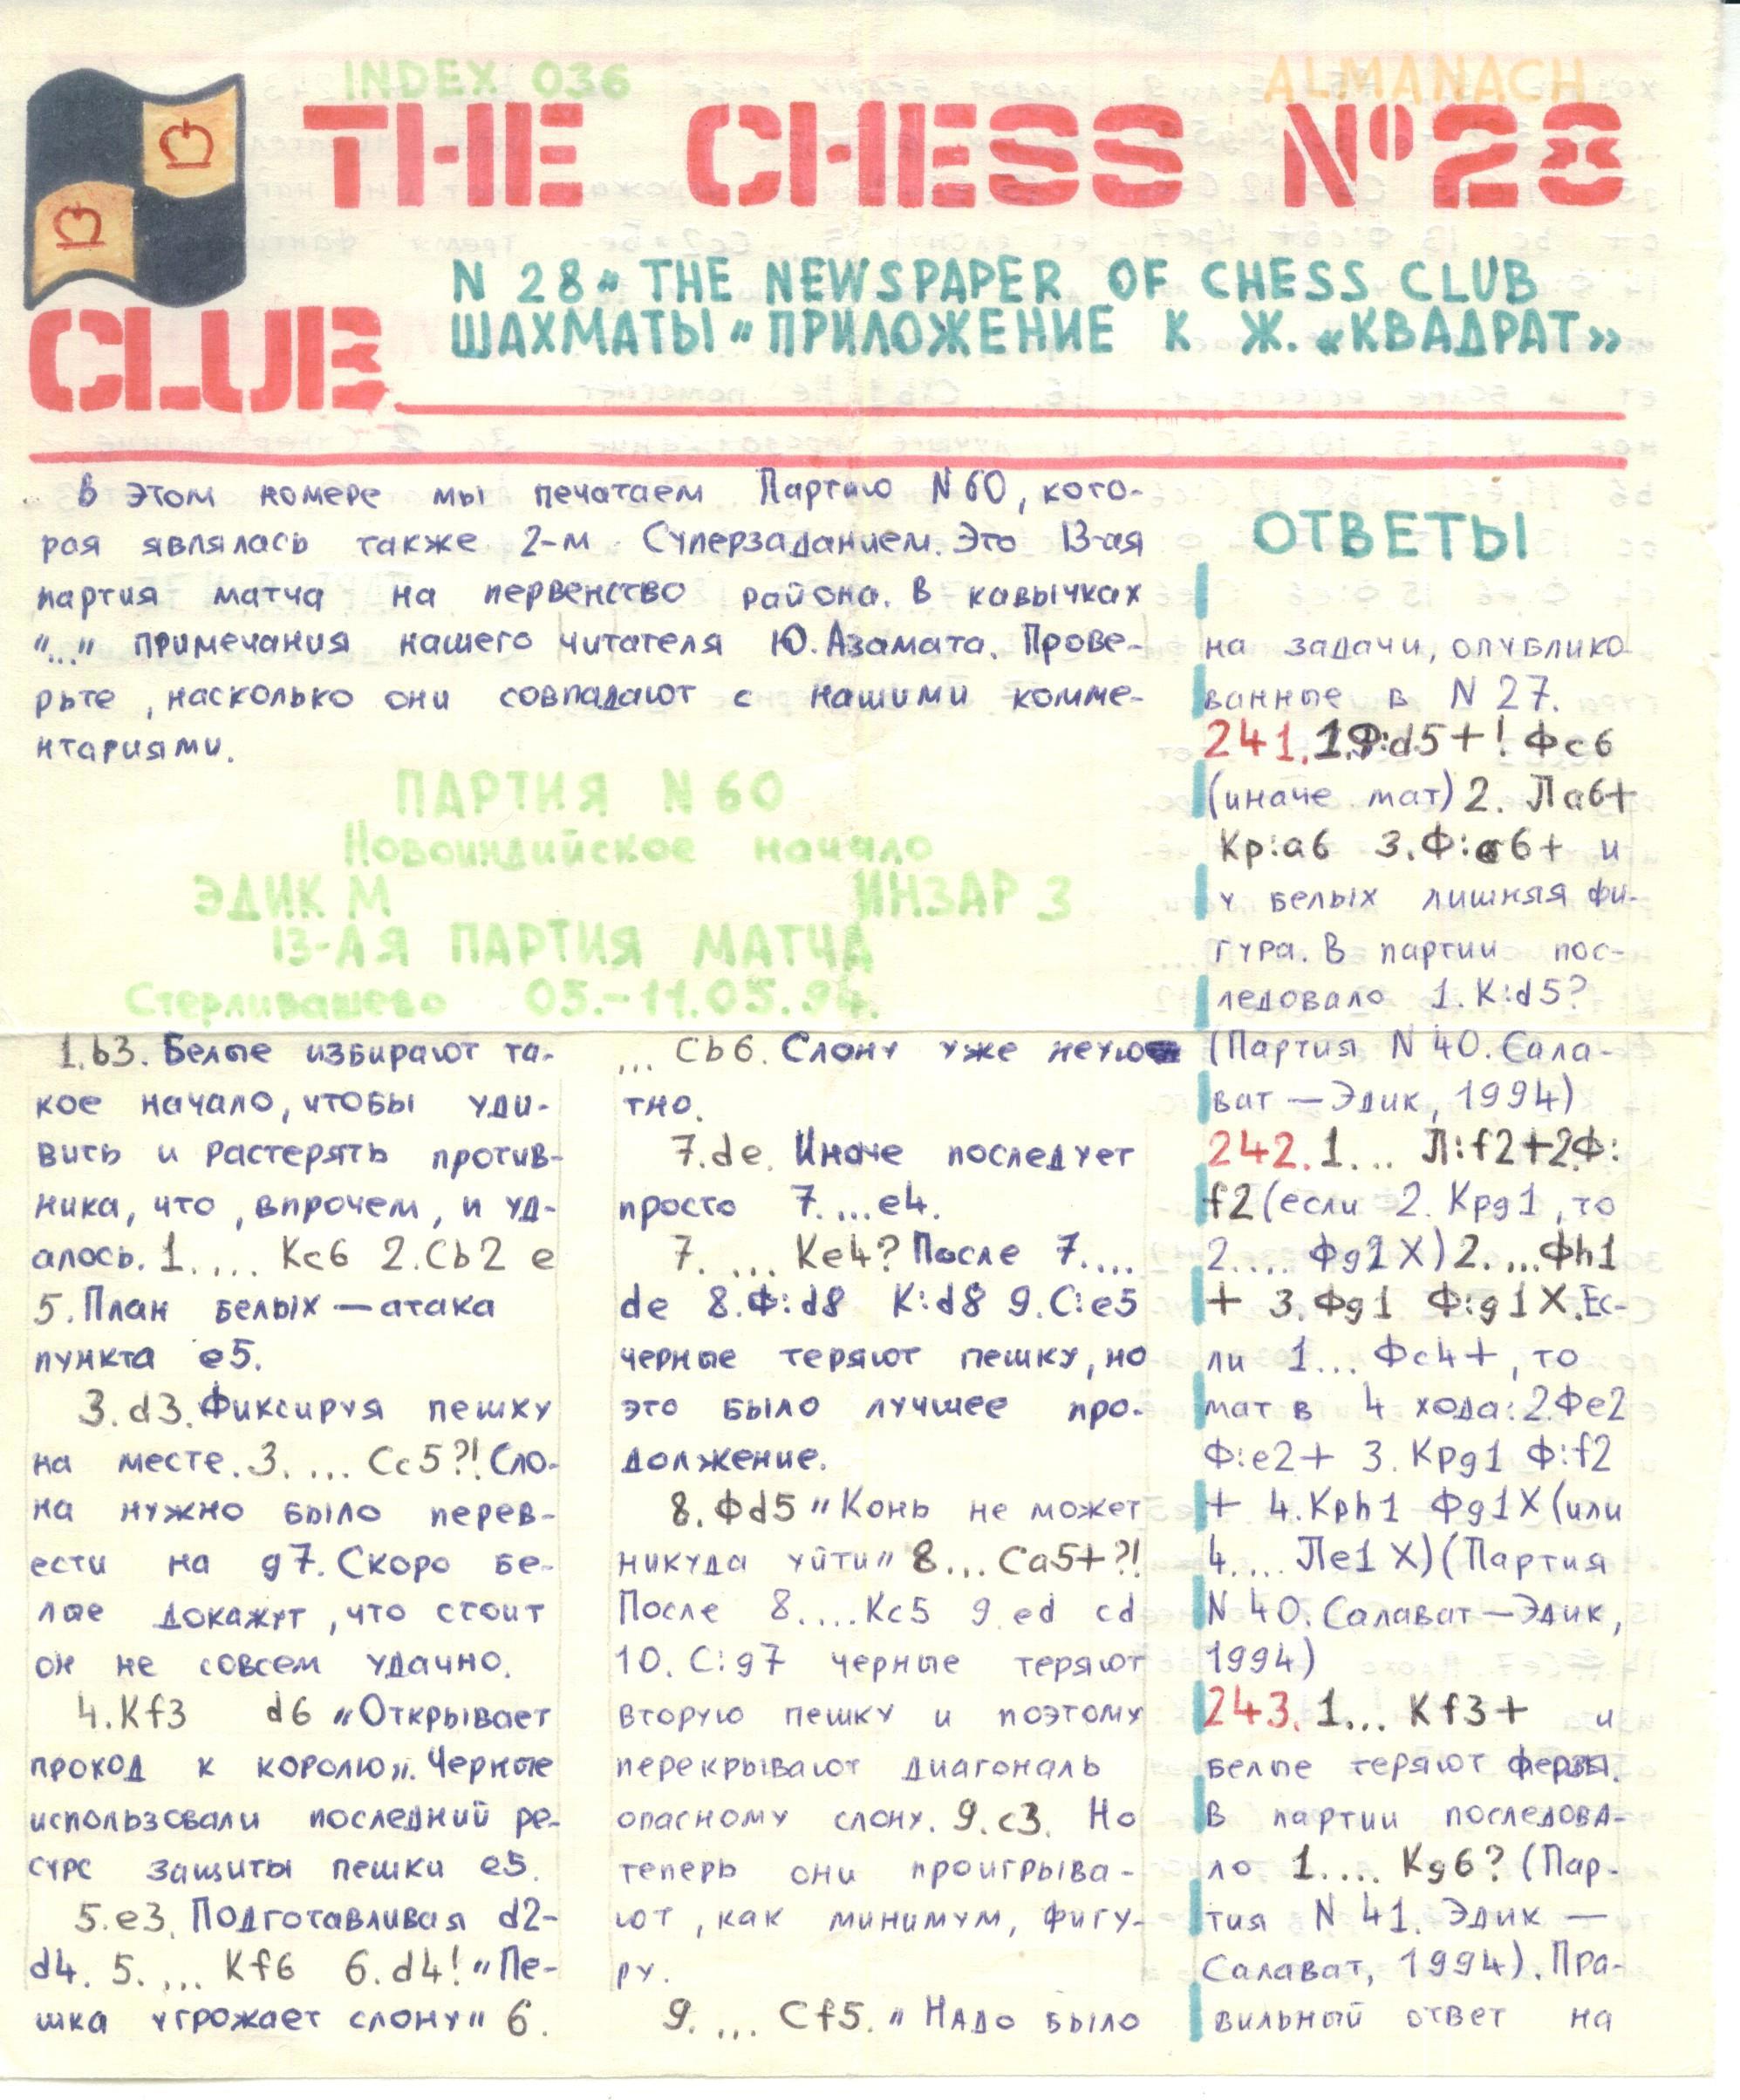 INDEX 036
ALMANACH
THE CHESS №28
CLUB
N 28 „ THE NEWSPAPER OF CHESS CLUB
ШАХМАТЫ „ ПРИЛОЖЕНИЕ К Ж. «КВАДРАТ»
В этом номере мы печатаем Партию N 60, кото-
рая являлась также 2-м Суперзаданием. Это 13-ая
партия матча на первенство района. В кавычках
"..." примечания нашего читателя Ю. Азамата. Прове-
рьте, насколько они совпадают с нашими комме-
нтариями.
ПАРТИЯ N 60
Новоиндийское начало
ЭДИК М ИНЗАР З
13-АЯ ПАРТИЯ МАТЧА
Стерливашево 05.-11.05.94.
1.b3. Белые избирают та-
кое начало, чтобы уди-
вить и растерять против-
ника, что, впрочем, и уд-
алось. 1. ... Кc6 2.Сb2 e
5. План белых — атака
пункта e5.
3.d3. Фиксируя пешку
на месте. 3. ... Сc5?! Сло-
на нужно было перев-
ести на g7. Скоро бе-
лые докажут, что стоит
он не совсем удачно.
4.Кf3 d6 "Открывает
проход к королю". Черные
использовали последний ре-
сурс защиты пешки e5.
5.e3. Подготавливая d2-
d4. 5. ... Кf6 6.d4! "Пе-
шка угрожает слону" 6.
... Сb6. Слону уже неую
тно.
7.de. Иначе последует
просто 7. ...e4.
7. ... Кe4? После 7....
de 8.Ф:d8 К:d8 9.С:e5
черные теряют пешку, но
это было лучшее про-
должение.
8.Фd5 "Конь не может
никуда уйти" 8... Сa5+?!
После 8....Кc5 9.ed cd
10.С:g7 черные теряют
вторую пешку и поэтому
перекрывают диагональ
опасному слону. 9.c3. Но
теперь они проигрыва-
ют, как минимум, фигу-
ру.
9. ... Сf5. "Надо было
ОТВЕТЫ
на задачи, опублико
ванные в N 27.
241. 1.Ф:d5+! Фc6
(иначе мат) 2. Лa6+
Кр:a6 3.Ф:c6+ и
у белых лишняя фи-
гура. В партии пос-
ледовало 1.К:d5?
(Партия N 40. Сала-
ват — Эдик, 1994)
242. 1... Л:f2+ 2.Ф:
f2 (если 2. Крg1, то
2.... Фg2 X) 2. ...Фh1
+ 3.Фg1 Ф:g1 X. Ес-
ли 1... Фc4+, то
мат в 4 хода: 2.Фe2
Ф:e2+ 3. Крg1 Ф:f2
+ 4.Крh1 Фg1 X (или
4.... Лe1 X) (Партия
N 40. Салават — Эдик,
1994)
243. 1... Кf3+ и
белые теряют ферзя.
В партии последова-
ло 1.... Кg6? (Пар-
тия N 41. Эдик —
Салават, 1994). Пра-
вильный ответ на